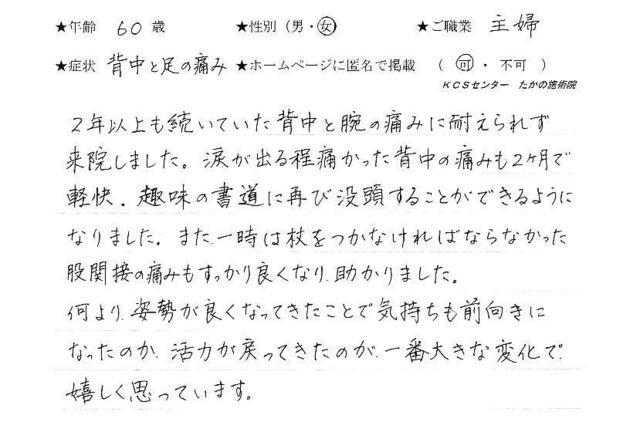 ★年齢 60 歳 ★性別（男・女） ★ご職業 主婦
★症状 背中と足の痛み ★ホームページに匿名で掲載 （ 可 ・ 不可 ）
KCSセンター たかの施術院
2年以上も続いていた背中と腕の痛みに耐えられず
来院しました。涙が出る程痛かった背中の痛みも2ヶ月で
軽快．趣味の書道に再び没頭することができるように
なりました．また一時は杖をつかなければならなかった
股関接の痛みもすっかり良くなり、助かりました。
何より、姿勢が良くなってきたことで気持ちも前向きに
なったのか、活力が戻ってきたのが、一番大きな変化で、
嬉しく思っています。